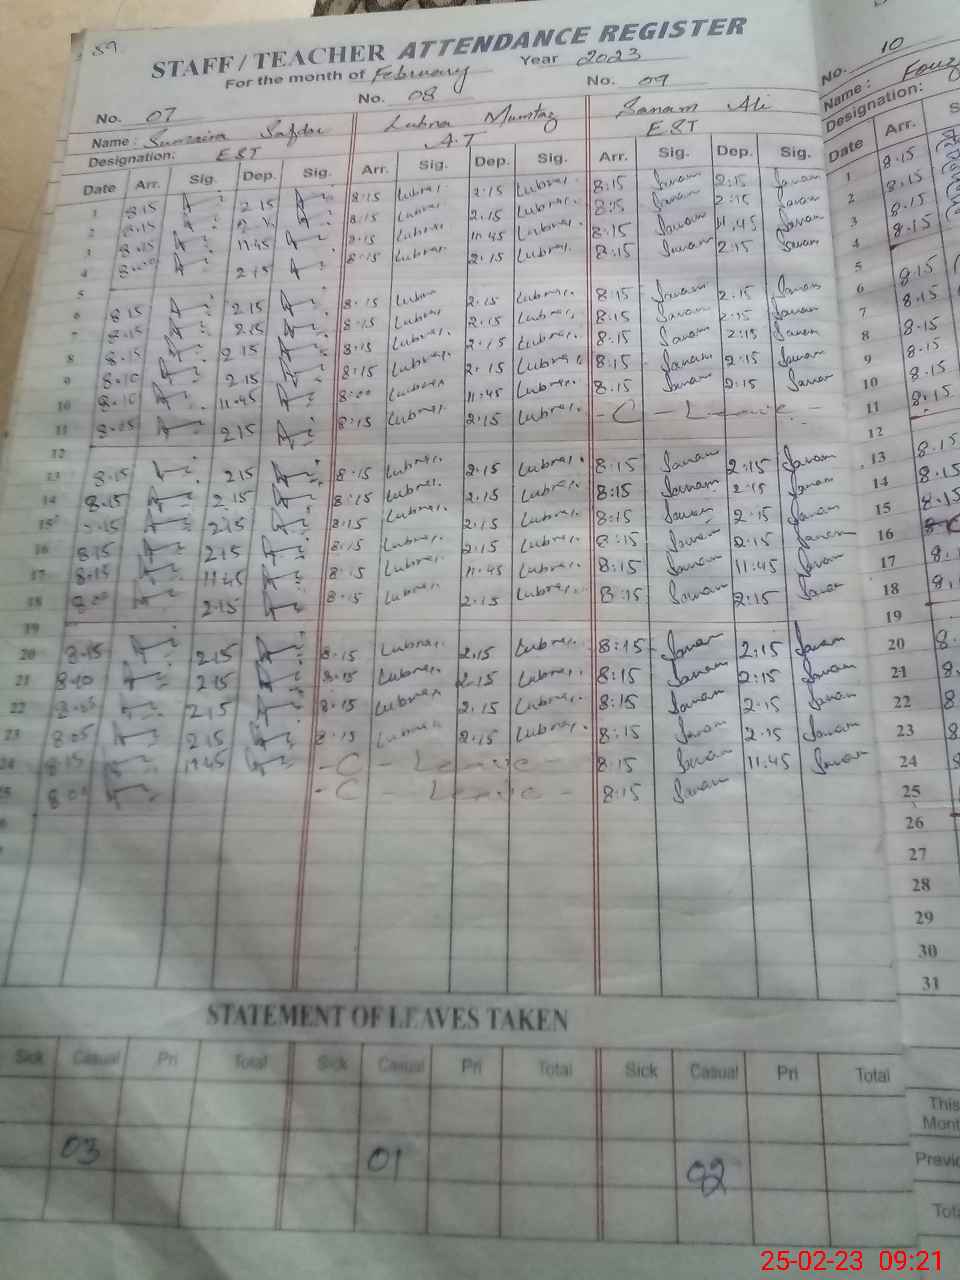 89.
STAFF/TEACHER ATTENDANCE REGISTER
For the month of February Year 2023
No. 07 No. 08 No. 09 No. 10
Name: Sumaira Safdar Lubna Mumtaz Sanam Ali Name:
Designation: EST A.T EST Designation:
Date Arr. Sig. Dep. Sig. Arr. Sig. Dep. Sig. Arr. Sig. Dep. Sig. Date Arr.
1 8:15 2:15 8:15 Lubna 2:15 Lubna 8:15 Sanam 2:15 Sanam 1 8:15
2 8:15 8:15 Lubna 2:15 Lubna 8:15 Sanam 2:15 Sanam 2 8:15
3 8:15 11:45 8:15 Lubna 11:45 Lubna 8:15 Sanam 11:45 Sanam 3 8:15
4 8:00 2:15 8:15 Lubna 2:15 Lubna 8:15 Sanam 2:15 Sanam 4 8:15
5 5
6 8:15 2:15 8:15 Lubna 2:15 Lubna 8:15 Sanam 2:15 Sanam 6 8:15
7 8:15 2:15 8:15 Lubna 2:15 Lubna 8:15 Sanam 2:15 Sanam 7 8:15
8 8:15 2:15 8:15 Lubna 2:15 Lubna 8:15 Sanam 2:15 Sanam 8 8:15
9 8:10 2:15 8:15 Lubna 2:15 Lubna 8:15 Sanam 2:15 Sanam 9 8:15
10 8:15 11:45 8:00 Lubna 11:45 Lubna 8:15 Sanam 2:15 Sanam 10 8:15
11 8:05 2:15 8:15 Lubna 2:15 Lubna - C - Leave - 11 8:15
12 12
13 8:15 2:15 8:15 Lubna 2:15 Lubna 8:15 Sanam 2:15 Sanam 13 8:15
14 8:15 2:15 8:15 Lubna 2:15 Lubna 8:15 Sanam 2:15 Sanam 14 8:15
15 2:15 8:15 Lubna 2:15 Lubna 8:15 Sanam 2:15 Sanam 15 8:15
16 8:15 2:15 8:15 Lubna 2:15 Lubna 8:15 Sanam 2:15 Sanam 16
17 8:15 11:45 8:15 Lubna 11:45 Lubna 8:15 Sanam 11:45 Sanam 17
18 8:00 2:15 8:15 Lubna 2:15 Lubna 8:15 Sanam 2:15 Sanam 18
19 19
20 8:15 2:15 8:15 Lubna 2:15 Lubna 8:15 Sanam 2:15 Sanam 20
21 8:10 2:15 8:15 Lubna 2:15 Lubna 8:15 Sanam 2:15 Sanam 21
22 8:05 2:15 8:15 Lubna 2:15 Lubna 8:15 Sanam 2:15 Sanam 22
23 8:05 2:15 8:15 Lubna 2:15 Lubna 8:15 Sanam 2:15 Sanam 23
24 8:15 11:45 - C - Leave - 8:15 Sanam 11:45 Sanam 24
25 - C - Leave - 8:15 Sanam 25
26
27
28
29
30
31
STATEMENT OF LEAVES TAKEN
Sick Casual Pri Total Sick Casual Pri Total Sick Casual Pri Total
This
03 01 02
25-02-23 09:21